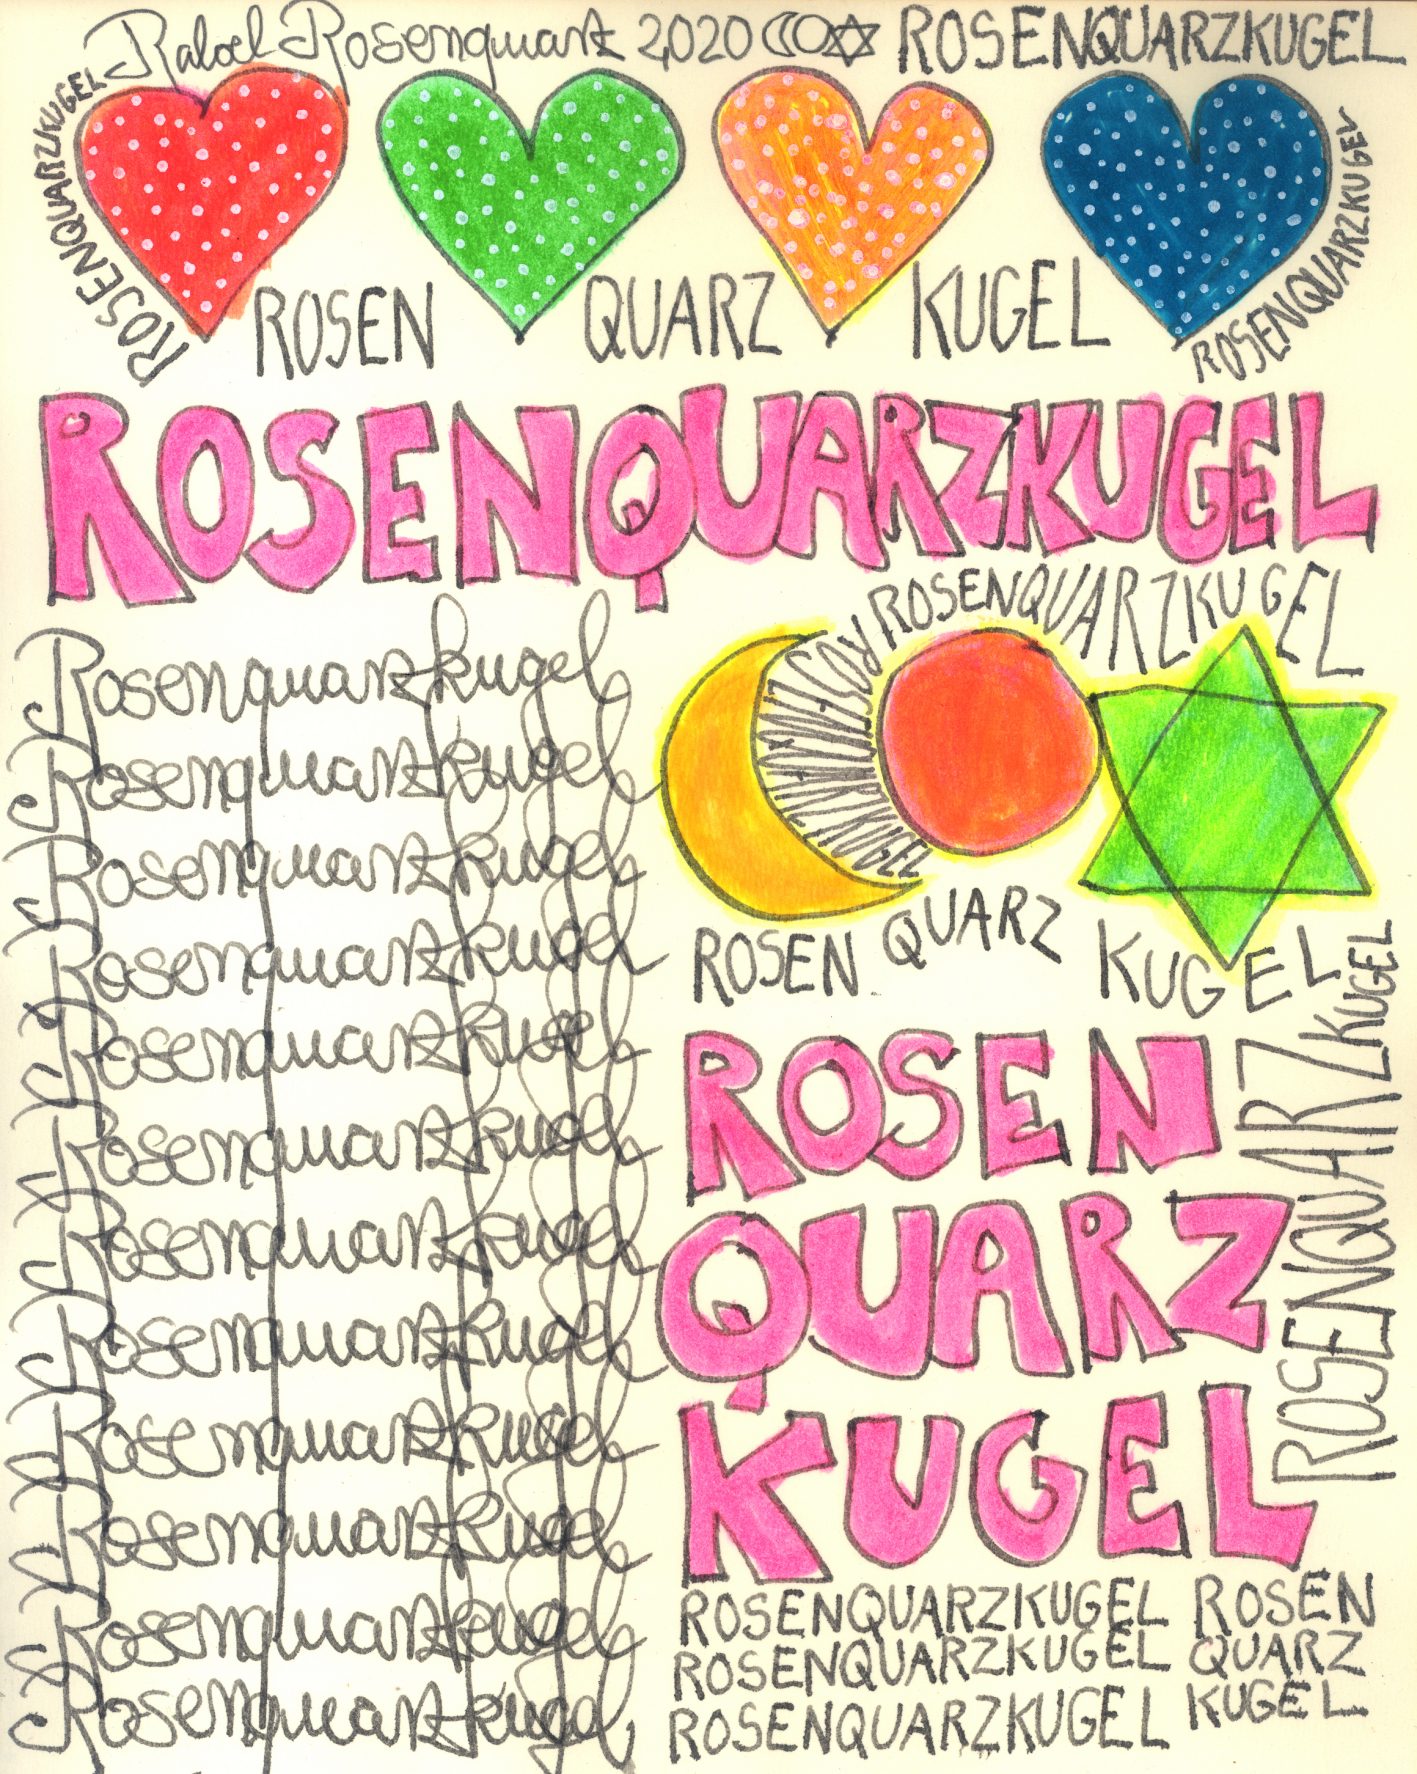 Rosenquarz 2020 ROSENQUARZKUGEL
ROSENQUARZKUGEL
ROSENQUARZKUGEL
ROSEN QUARZ KUGEL
ROSENQUARZKUGEL
ROSENQUARZKUGEL
ROSENQUARZKUGEL
Rosenquarzkugel
Rosenquarzkugel
Rosenquarzkugel
Rosenquarzkugel
Rosenquarzkugel
Rosenquarzkugel
Rosenquarzkugel
Rosenquarzkugel
Rosenquarzkugel
Rosenquarzkugel
Rosenquarzkugel
Rosenquarzkugel
ROSENQUARZKUGEL
ROSEN QUARZ KUGEL
ROSEN
QUARZ
KUGEL
ROSENQUARZKUGEL
ROSENQUARZKUGEL
ROSENQUARZKUGEL
ROSENQUARZKUGEL
ROSEN
QUARZ
KUGEL